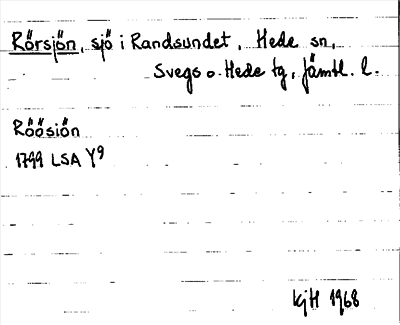 Rörsjön, sjö i Randsundet, Hede sn,
Svegs o. Hede tg, Jämtl. l.
Röösiön
1799 LSA Y9
kjH 1968